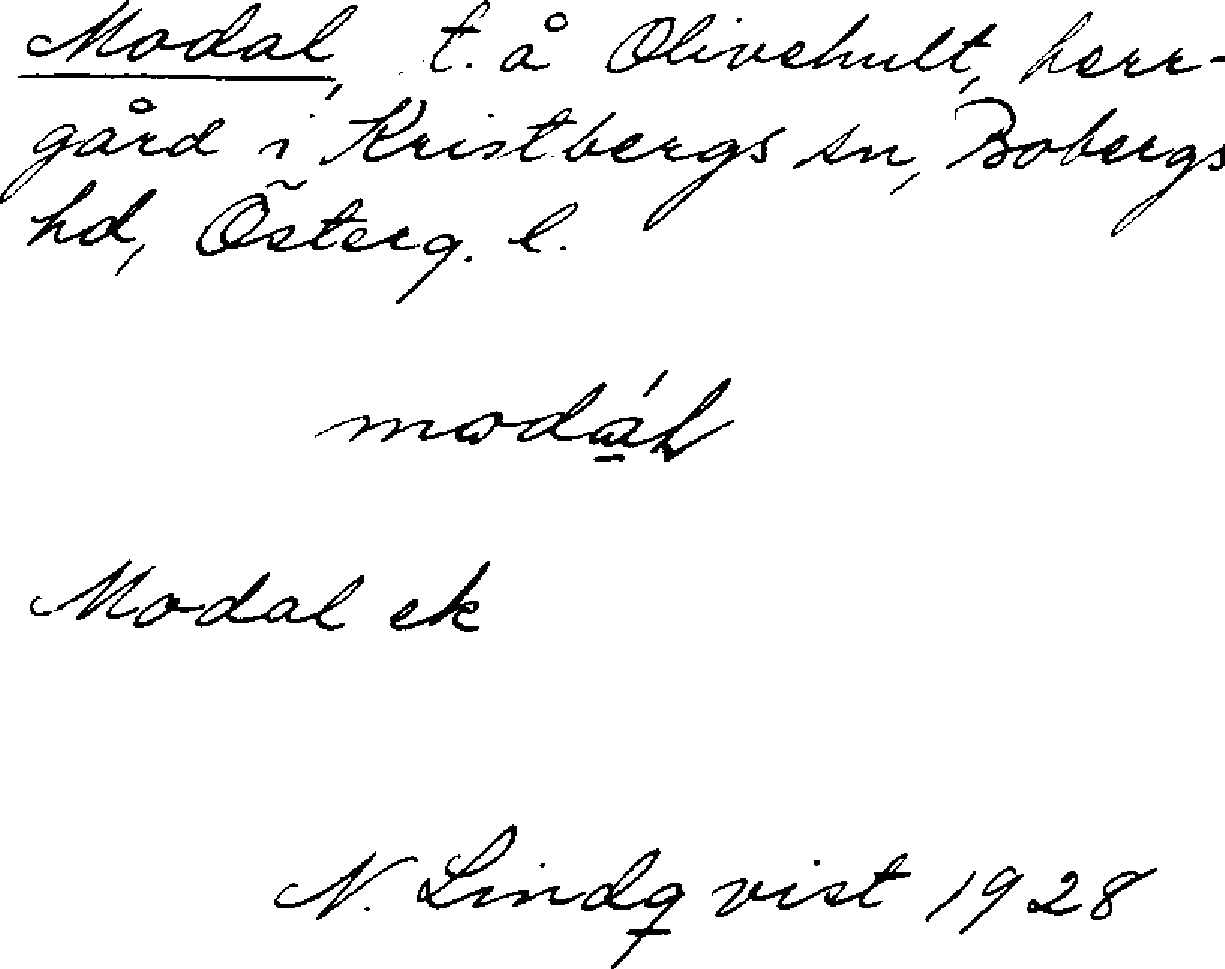 Modal, t. å Olivehult, herr-
gård i Kristbergs sn, Bobergs
hd, Österg. l.
Modal ek
N. Lindqvist 1928